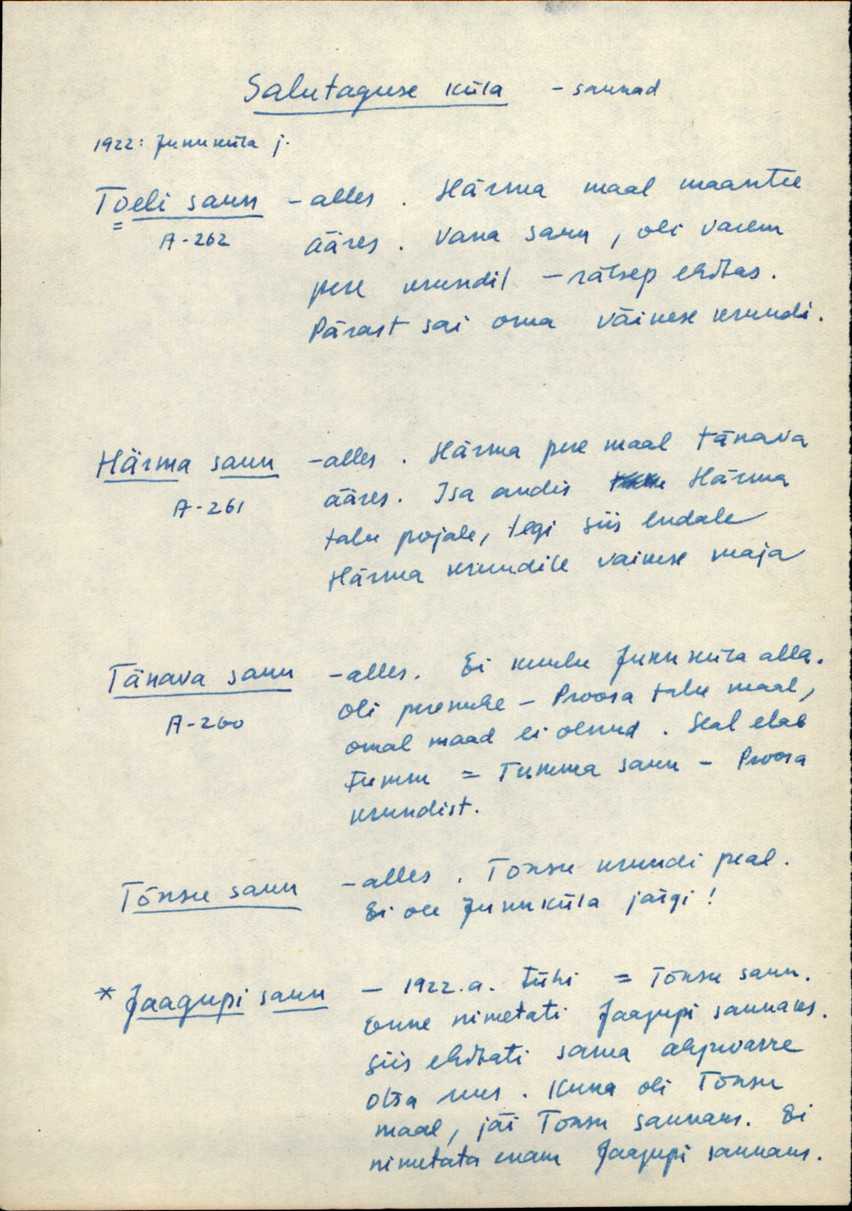 Salutaguse küla - saunad
1922: Junuküla j.
Toeli saun - alles. Härma maal maantee
A-262 ääres. Vana saun, oli varem
pere krundil - rätsep ehitas.
Pärast sai oma väikese krundi.
Härma saun - alles. Härma pere maal tänava
A-261 ääres. Isa andis Härma
talu pojale, tegi siis endale
Härma krundile väikese maja
Tänava saun - alles. Ei kuulu Junuküla alla.
A-260 Oli perenuhe - Proosa talu maal,
omal maad ei olnud. Seal elab
Tumm = Tumma saun - Proosa
krundist.
Tõnsu saun - alles. Tõnsu krundi peal.
Ei ole Junuküla järgi!
* Jaagupi saun - 1922.a. tühi = Tõnsu saun.
Enne nimetati Jaagupi saunaks.
Siis ehitati sama ahjuvarre
otsa uus. Kuna oli Tõnsu
maal, jäi Tõnsu saunaks. Ei
nimetata enam Jaagupi saunaks.